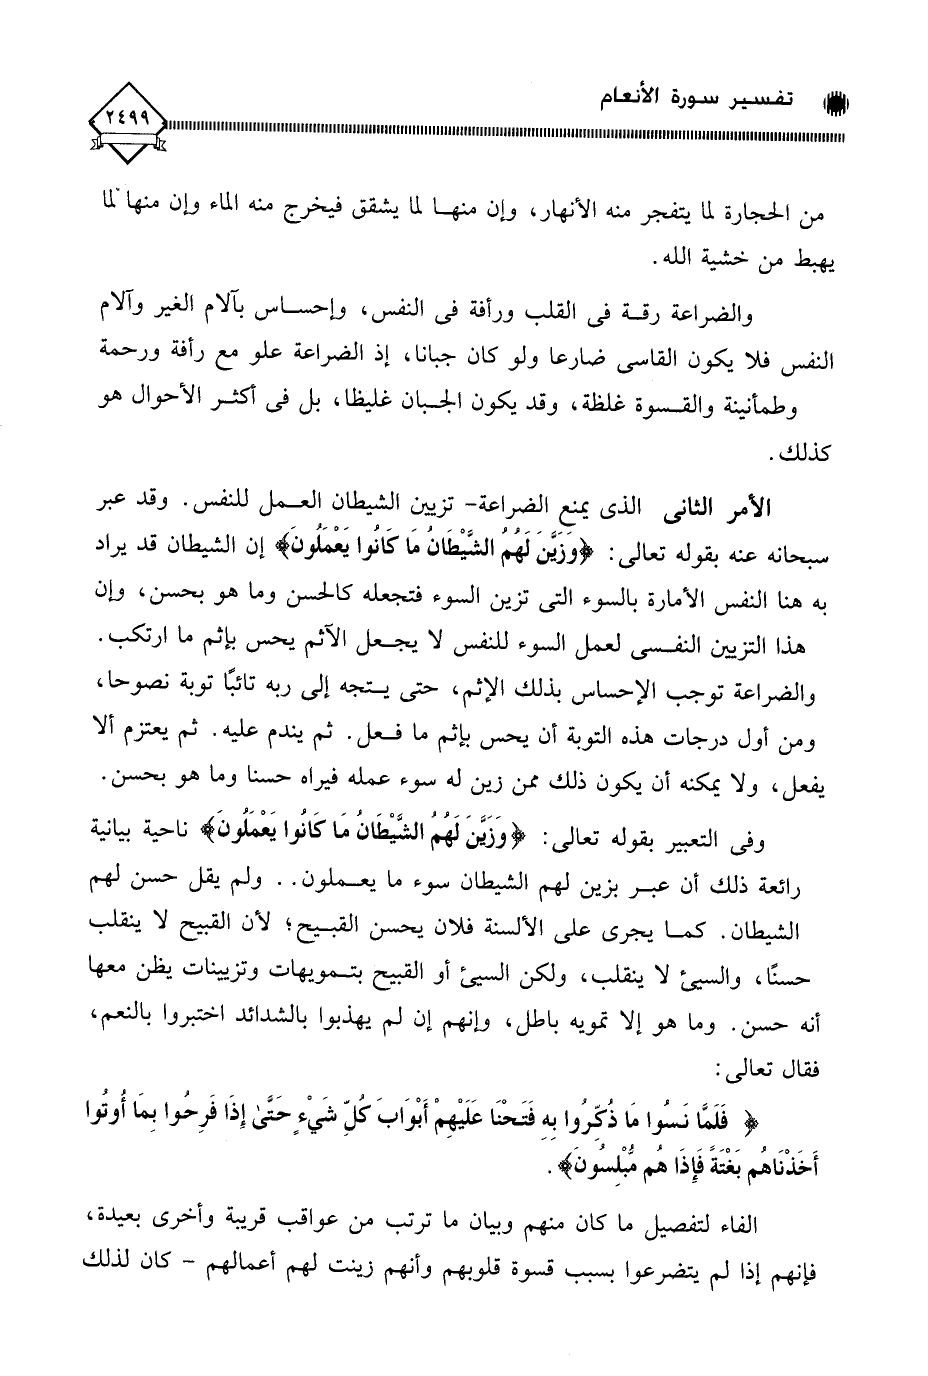 تفسير سورة الأنعام
٢٤٩٩
من الحجارة لما يتفجر منه الأنهار، وإن منهـا لما يشقق فيخرج منه الماء وإن منها لما
يهبط من خشية الله.
والضراعة رقـة فى القلب ورأفة فى النفس، وإحسـاس بآلام الغير وآلام
النفس فلا يكون القاسى ضارعا ولو كان جبانا، إذ الضراعة علو مع رأفة ورحمة
وطمأنينة والقـسوة غلظة، وقد يكون الجـبان غليظا، بل فى أكثـر الأحوال هو
كذلك.
الأمر الثانى الذى يمنع الضراعة- تزيين الشيطان العـمل للنفس. وقد عبر
سبحانه عنه بقوله تعالى: ﴿وَزَيَّنَ لَهُمُ الشَّيْطَانُ مَا كَانُوا يَعْمَلُونَ﴾ إن الشيطان قد يراد
به هنا النفس الأمارة بالسوء التى تزين السوء فتجعله كالحسن وما هو بحسن، وإن
هذا التزيين النفـسى لعمل السوء للنفس لا يجـعل الآثم يحس بإثم ما ارتكب.
والضراعة توجب الإحساس بذلك الإثم، حتى يـتجه إلى ربه تائبًا توبة نصوحا،
ومن أول درجات هذه التوبة أن يحس بإثم ما فـعل. ثم يندم عليه. ثم يعتزم ألا
يفعل، ولا يمكنه أن يكون ذلك ممن زين له سوء عمله فيراه حسنا وما هو بحسن.
وفى التعبير بقوله تعالى: ﴿وَزَيَّنَ لَهُمُ الشَّيْطَانُ مَا كَانُوا يَعْمَلُونَ﴾ ناحية بيانية
رائعة ذلك أن عبـر بزين لهم الشيطان سوء ما يعـملون.. ولم يقل حسن لهم
الشيطان. كمـا يجرى على الألسنة فلان يحسن القبـيح؛ لأن القبيح لا ينقلب
حسنًا، والسيئ لا ينقلب، ولكن السيئ أو القبيح بتـمويهات وتزيينات يظن معها
أنه حسن. وما هو إلا تمويه باطل، وإنهم إن لم يهذبوا بالشدائد اختبروا بالنعم،
فقال تعالى:
﴿ فَلَمَّا نَسُوا مَا ذُكِّرُوا بِهِ فَتَحْنَا عَلَيْهِمْ أَبْوَابَ كُلِّ شَيْءٍ حَتَّىٰ إِذَا فَرِحُوا بِمَا أُوتُوا
أَخَذْنَاهُم بَغْتَةً فَإِذَا هُم مُّبْلِسُونَ﴾.
الفاء لتفصيل ما كان منهم وبيان ما ترتب من عواقب قريبة وأخرى بعيدة،
فإنهم إذا لم يتضرعوا بسبب قسوة قلوبهم وأنهم زينت لهم أعمالهم - كان لذلك